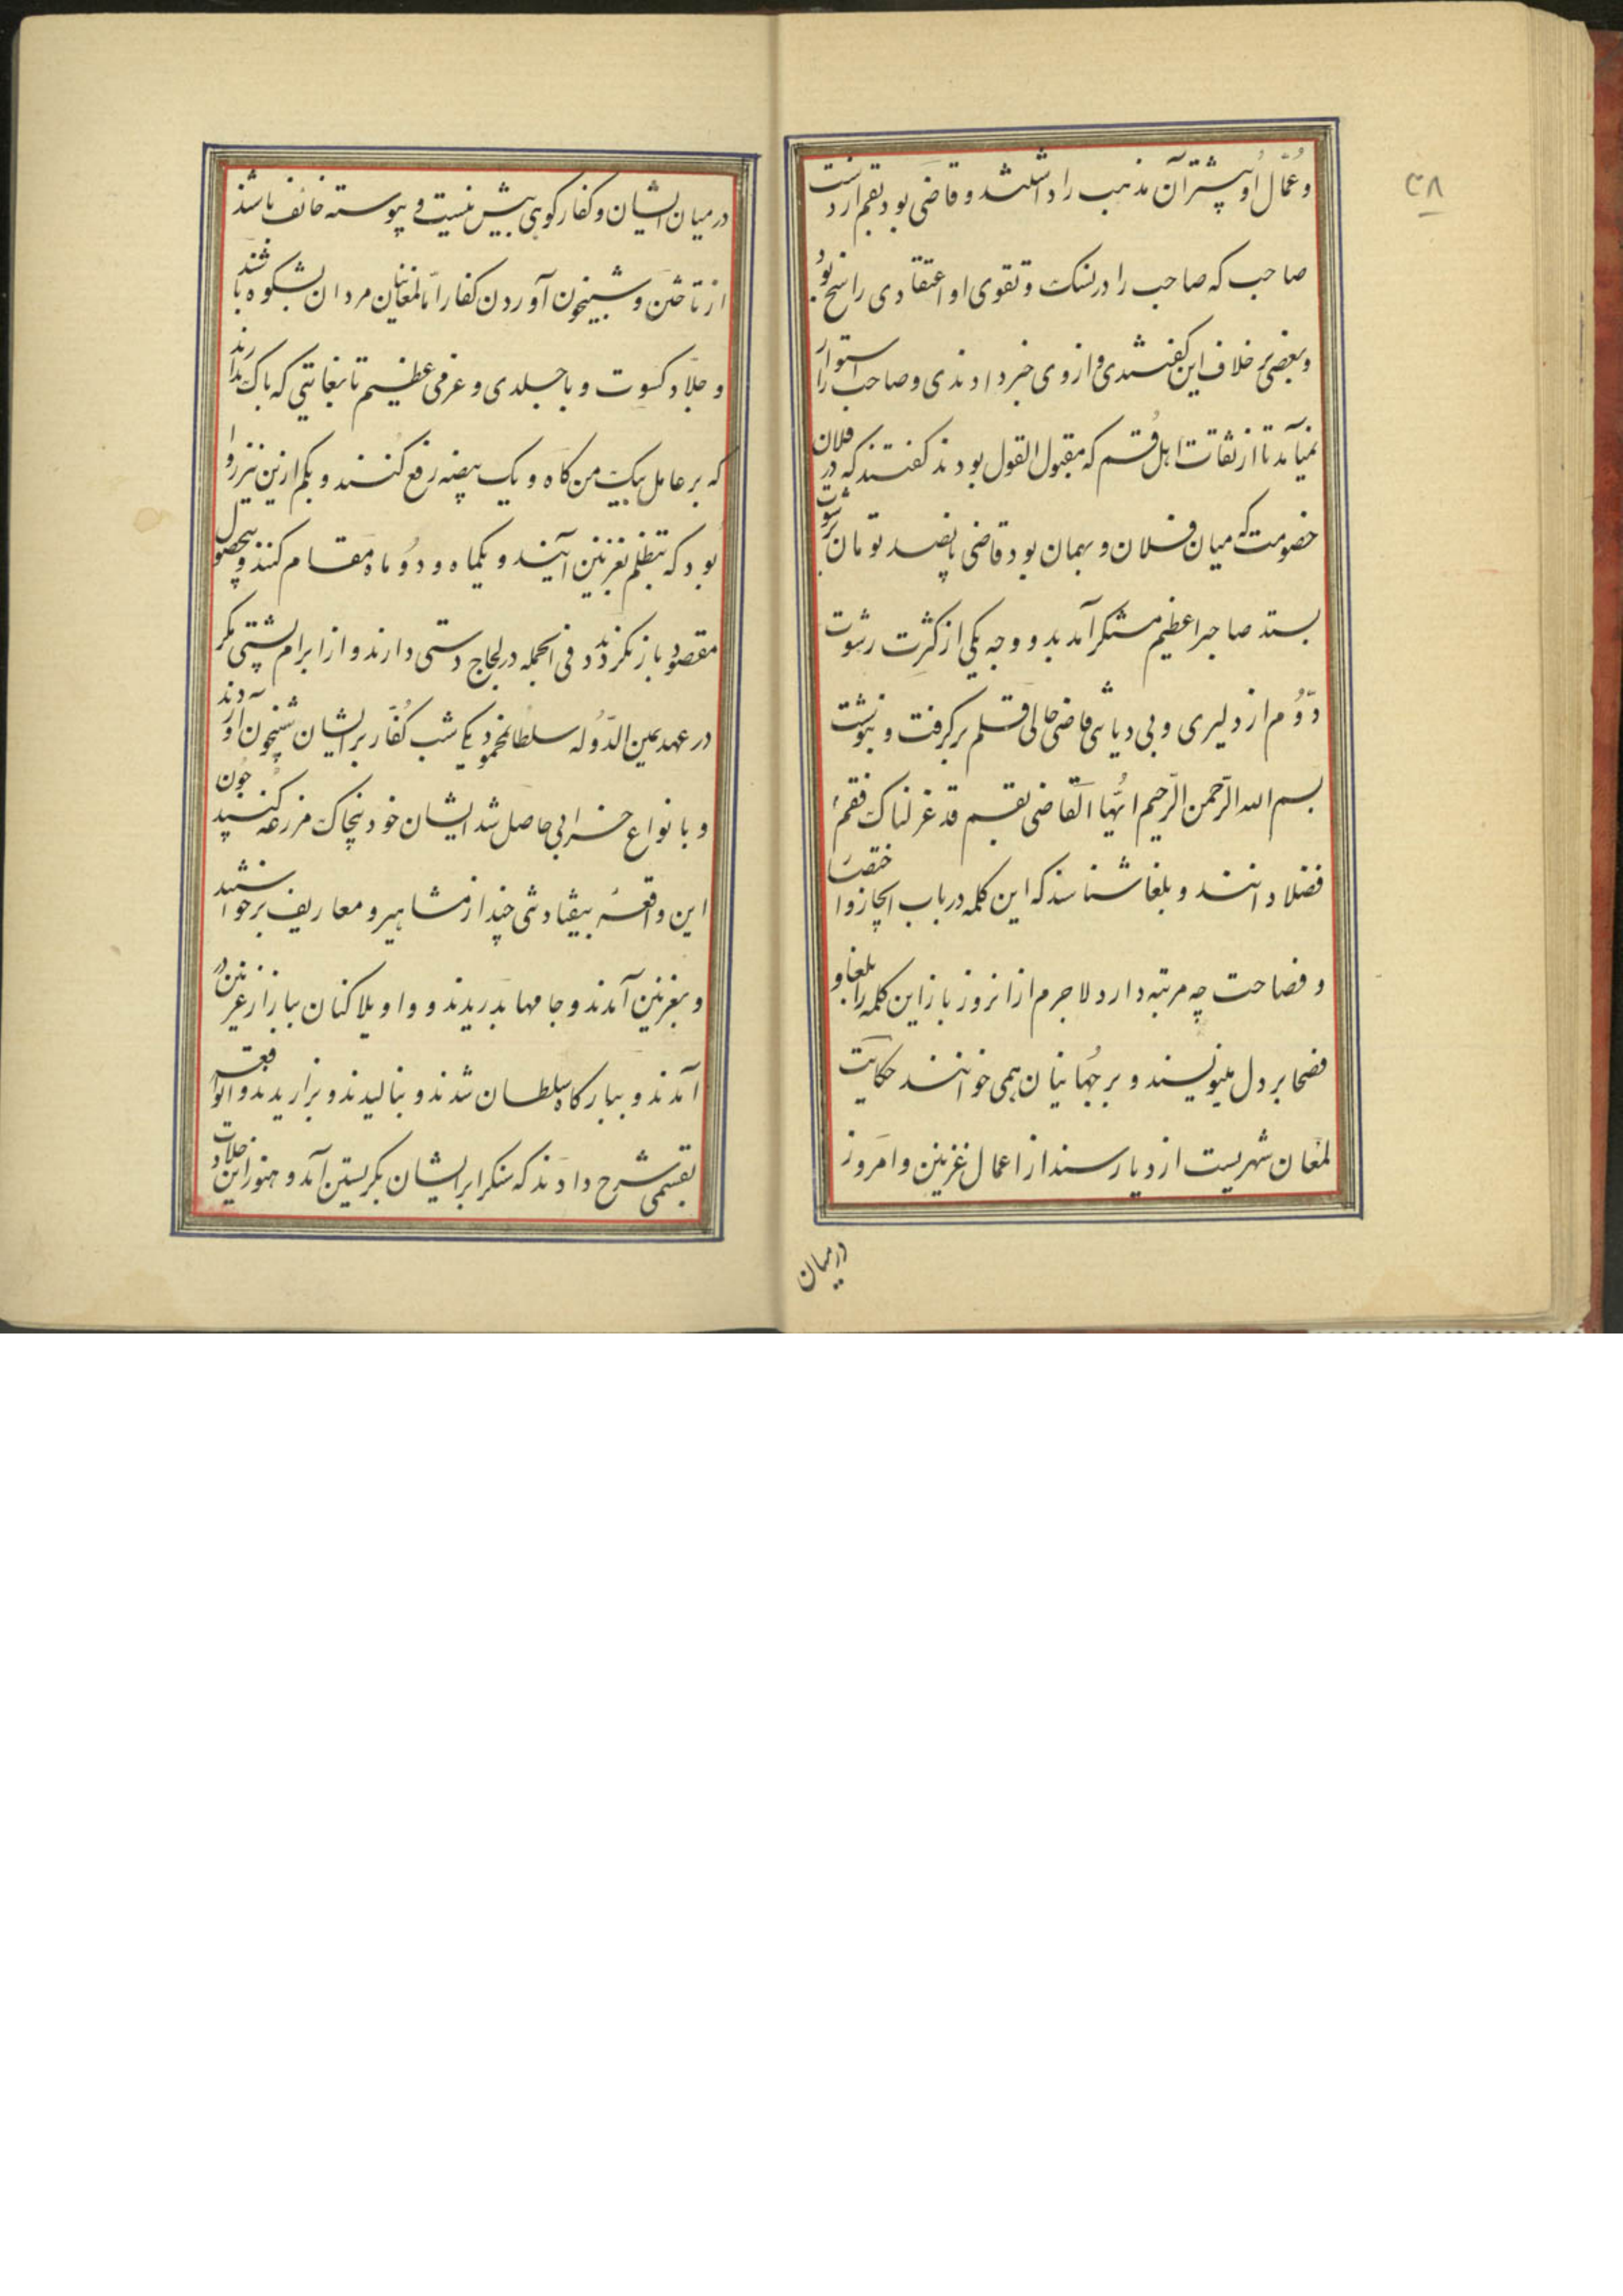 ۳۸
و عُمّال او بیشتر آن مذهب را داشتند و قاضی بود بقم از دست
صاحب که صاحب را در نسک و تقوی او اعتقادی راسخ بود
و بعضی بر خلاف این گفتندی و از وی خبر دادندی و صاحب را استوار
نمیآمد تا از ثقات اهل قم که مقبول القول بودند گفتند که در فلان
خصومت که میان فلان و بهمان بود قاضی پانصد تومان رشوت
بستد صاحبرا عظیم مستنکر آمد بدو وجه یکی از کثرت رشوت
دوُّم از دلیری و بی دیانتی قاضی حالی قلم برگرفت و بنوشت
بسم الله الرّحمن الرّحیم ایّها القاضی بقم قد عزلناک فقم
فضلا دانند و بلغا شناسند که این کلمه در باب ایجاز و اختصار
و فصاحت چه مرتبه دارد لاجرم از انروز باز این کلمه را بلغا و
فصحا بر دل مینویسند و بر جهانیان همی خوانند حکایت
لمغان شهریست از دیار سند از اعمال غزنین و امروز
درمیان
در میان ایشان و کفار کوهی بیش نیست و پیوسته خائف باشند
از تاختن و شبیخون آوردن کفار اما لمغانیان مردان بشکوه باشند
و جلاد کسوت و با جلدی و عرفی عظیم تا بغایتی که باک ندارند
که بر عامل بیک من کاه و یک بیضه رفع کنند و بکم ازین نیز روا
بود که بتظلم بغزنین آیند و یکماه و دو ماه مقام کنند و بیحصول
مقصود باز نگردند و فی الجمله در لجاج دستی دارند و از ابرام پشتی مگر
در عهد یمین الدّوله سلطان محمود یکشب کفّار بر ایشان شبیخون آوردند
و بانواع خرابی حاصل شد ایشان خود بیخاک مزرعه کنند چون
این واقعه بیفتاد تنی چند از مشاهیر و معاریف برخواستند
و بغزنین آمدند و جامها بدریدند و واویلا کنان ببازار غزنین در
آمدند و ببارگاه سلطان شدند و بنالیدند و بزاریدند و آن واقعه
بقسمی شرح دادند که سنگ را بر ایشان گریستن آمد و هنوز این